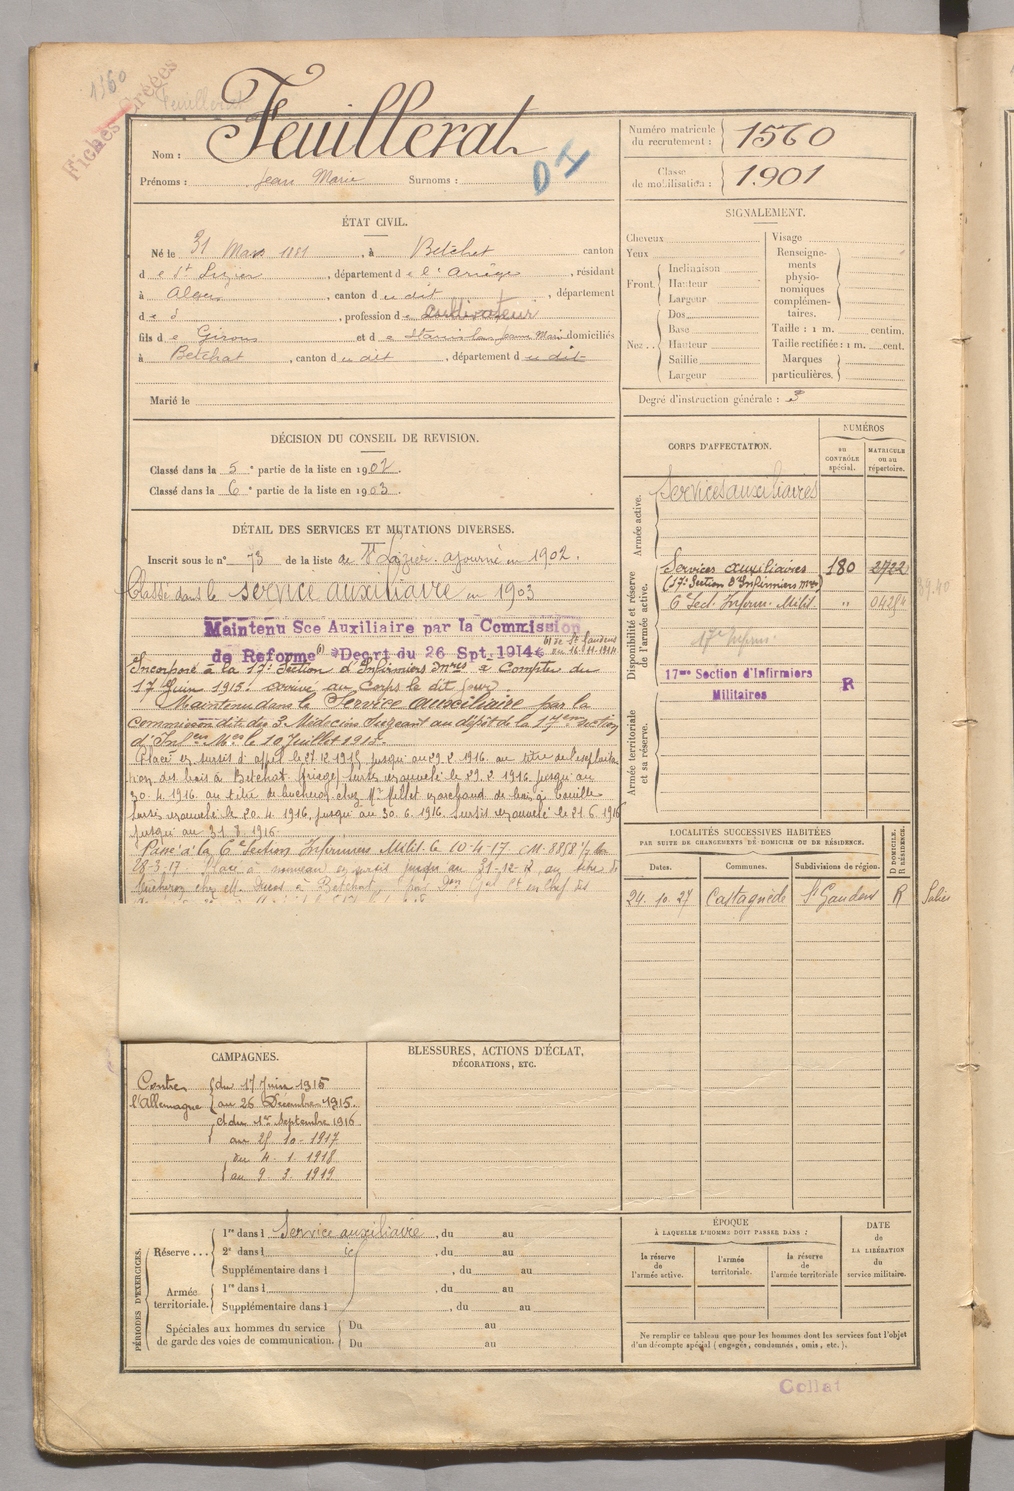 1560
Fiches Créées
Feuillerat
Nom : Feuillerat
Prénoms : Jean Marie Surnoms :
D I
Numéro matricule du recrutement : 1560
Classe de mobilisation : 1901
ÉTAT CIVIL.
Né le 31 Mars 1881, à Betchat canton
de St Lizier, département de l'Ariège, résidant
à Alger, canton du dit, département
d , profession de cultivateur
fils de Girons et de domiciliés
à Betchat, canton du dit, département du dit
Marié le
SIGNALEMENT.
Cheveux
Yeux
Front. Inclinaison
Hauteur
Largeur
Nez.. Dos
Base
Hauteur
Saillie
Largeur
Visage
Renseignements physionomiques complémentaires.
Taille : 1 m. centim.
Taille rectifiée : 1 m. cent.
Marques particulières.
Degré d'instruction générale : 3
DÉCISION DU CONSEIL DE REVISION.
Classé dans la 5e partie de la liste en 1902.
Classé dans la 6e partie de la liste en 1903.
DÉTAIL DES SERVICES ET MUTATIONS DIVERSES.
Inscrit sous le n° 73 de la liste de St Lizier. ajourné en 1902.
Classé dans le service auxiliaire en 1903
Maintenu Sce Auxiliaire par la Commission
de Reforme Décrt du 26 Spt. 1914
de St Gaudens
du 16.11.1914
Incorporé à la 17e Section d'Infirmiers Mres à Compter du
17 Juin 1915. arrivé au Corps le dit jour
Maintenu dans le Service auxiliaire par la
Commission dite des 3 Médecins siégeant au dépôt de la 17ème section
d'Infers Mres le 10 Juillet 1915.
Placé en sursis d'appel le 27.12.1915 jusqu'au 29.2.1916 au titre de l'exploita
tion des bois à Betchat. sursis renouvelé le 29.2.1916 jusqu'au
30.4.1916 au titre de bucheron chez Mr marchand de bois à
sursis renouvelé le 20.4.1916, jusqu'au 30.6.1916 Sursis renouvelé le 21.6.1916
jusqu'au 31.8.1916.
Passé à la 6e Section Infirmiers Milit. le 10-4-17
28-3-17. Placé à nouveau en sursis jusqu'au 31-12-17, au titre de
bucheron chez M. à Betchat,
CORPS D'AFFECTATION.
NUMÉROS
au CONTRÔLE spécial.
MATRICULE ou au répertoire.
Armée active.
Services auxiliaires
Disponibilité et réserve de l'armée active.
Services auxiliaires 180 2722
(17e Section d'Infirmiers Mres)
6e Sect. Infirm. Milit. "
17e Infirm.
17me Section d'Infirmiers
Militaires R
Armée territoriale et sa réserve.
LOCALITÉS SUCCESSIVES HABITÉES
PAR SUITE DE CHANGEMENTS DE DOMICILE OU DE RÉSIDENCE.
Dates. Communes. Subdivisions de région. D DOMICILE. R RÉSIDENCE.
24. 10. 27 Castagnède St Gaudens R Salies
CAMPAGNES.
Contre l'Allemagne
du 17 Juin 1915
au 26 Décembre 1915.
et du 1er Septembre 1916
au 25 10 - 1917
du 4. 1. 1918
au 9. 3. 1919
BLESSURES, ACTIONS D'ÉCLAT,
DÉCORATIONS, ETC.
PÉRIODES D'EXERCICES.
Réserve ... 1re dans l Service auxiliaire, du au
2e dans l , du au
Supplémentaire dans l , du au
Armée territoriale. 1re dans l , du au
Supplémentaire dans l , du au
Spéciales aux hommes du service de garde des voies de communication. Du au
Du au
ÉPOQUE
À LAQUELLE L'HOMME DOIT PASSER DANS :
la réserve de l'armée active.
l'armée territoriale.
la réserve de l'armée territoriale
DATE
DE LA LIBÉRATION du service militaire.
Ne remplir ce tableau que pour les hommes dont les services font l'objet
d'un décompte spécial (engagés, condamnés, omis, etc.).
Collat